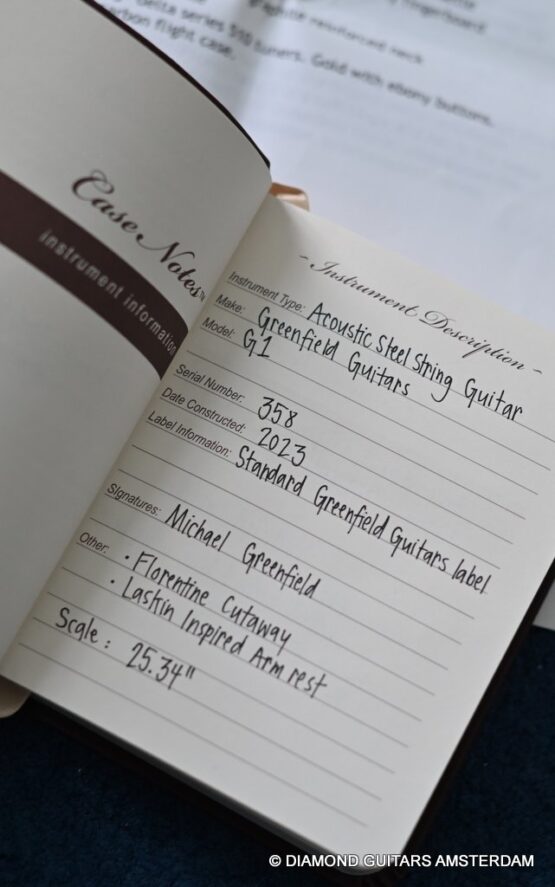 reinforced neck
fingerboard
delta series 510 tuners. Gold with ebony buttons.
flight case.
Case Notes™
instrument information
~ Instrument Description ~
Instrument Type: Acoustic Steel String Guitar
Make: Greenfield Guitars
Model: G1
Serial Number: 358
Date Constructed: 2023
Label Information: Standard Greenfield Guitars label
Signatures: Michael Greenfield
Other: • Florentine Cutaway
• Laskin Inspired Arm rest
Scale: 25.34"
© DIAMOND GUITARS AMSTERDAM